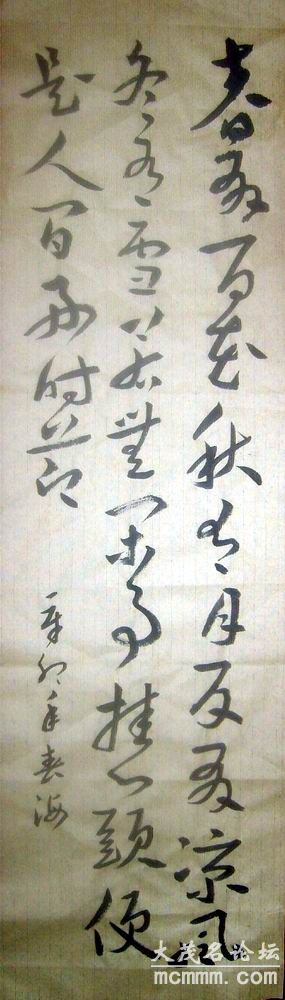 春有百花秋有月夏有凉風
冬有雪若無閒事挂心頭便
是人间好时节
辛卯年春海
大茂名论坛
mcmmm.com